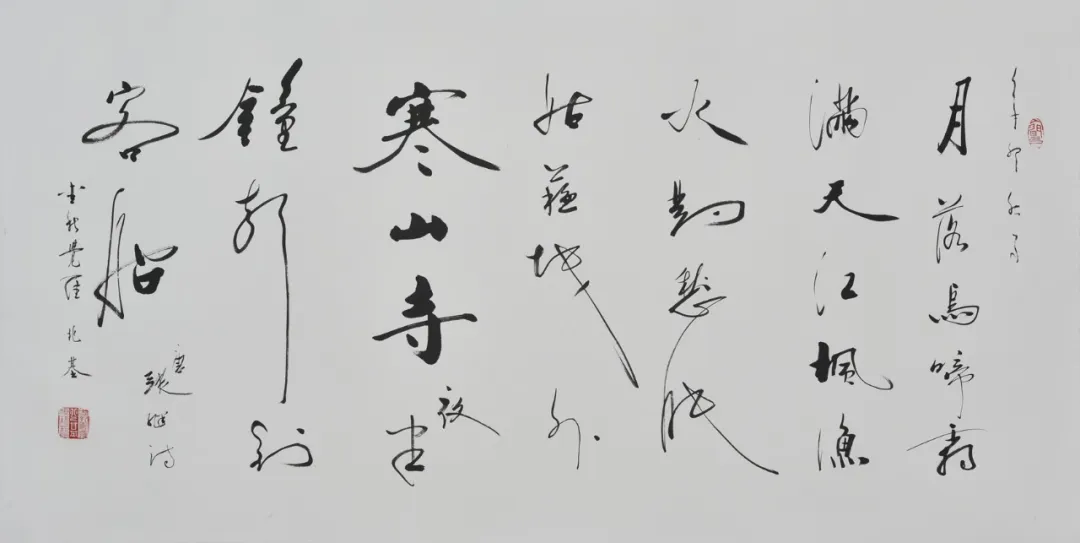 辛卯
月落烏啼霜
滿天江楓漁
火對愁眠
姑蘇城外
寒山寺夜半
鐘聲到
客船
唐張繼詩